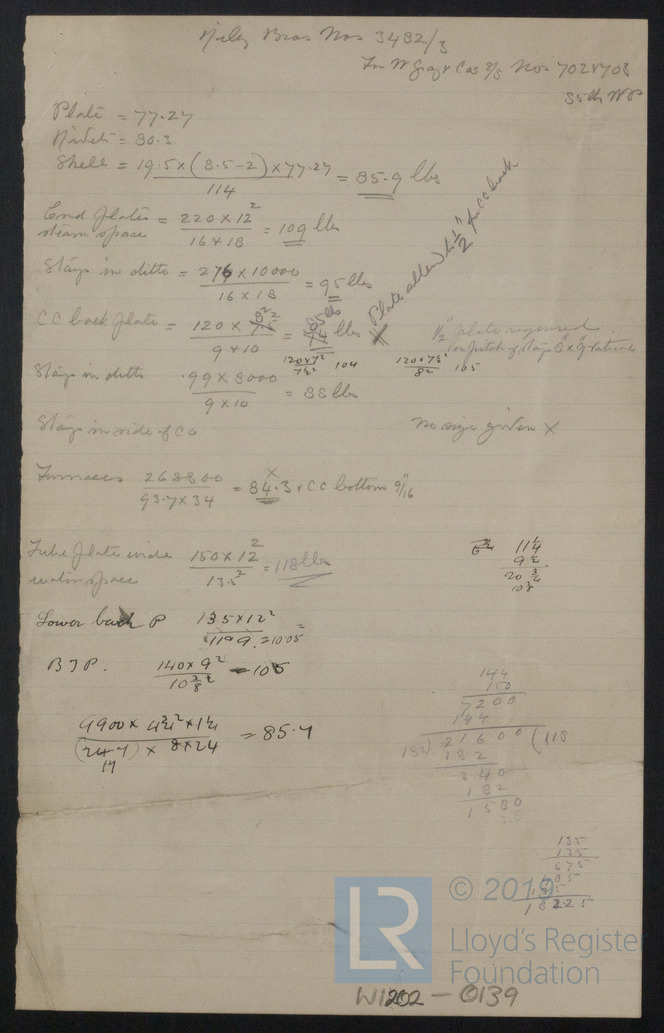 Riley Bros Nos 3482/3
For W Gray & Cos S/S Nos 702 & 703
85 lb WP
Plate = 77.27
Rivets = 80.3
Shell = 19.5 x (8.5 - 2) x 77.27 / 114 = 85.9 lbs
End plates steam space = 220 x 12² / 16 x 18 = 109 lbs
Stays in ditto = 276 x 10000 / 16 x 18 = 95 lbs
Plate allowed ½" for CC back
CC back plate = 120 x 8² / 9 x 10 = lbs
120 x 7² / 7½² 104
120 x 7½² / 8² 105
½" plate required
for pitch of stays 8" x 9"
Stays in ditto .99 x 8000 / 9 x 10 = 88 lbs
Stays in side of CC
No size given X
Furnaces 268800 / 93.7 x 34 = 84.3 x CC bottom 9/16"
Tube plate wide water space 150 x 12² / 13.5² = 118 lbs
11¼
9½
20¾
10⅜
Lower back P 135 x 12² / 119 = 100.5
B T P. 140 x 9² / 10⅜² = 105
9900 x 4¾² x 1¼ / (24-7) x 8 x 24 = 85.7
17
144
150
7200
144
182) 21600 (118
182
340
182
1580
135
135
675
405
135
18225
© 2019
LR
Lloyd's Register
Foundation
W1202 - 0139